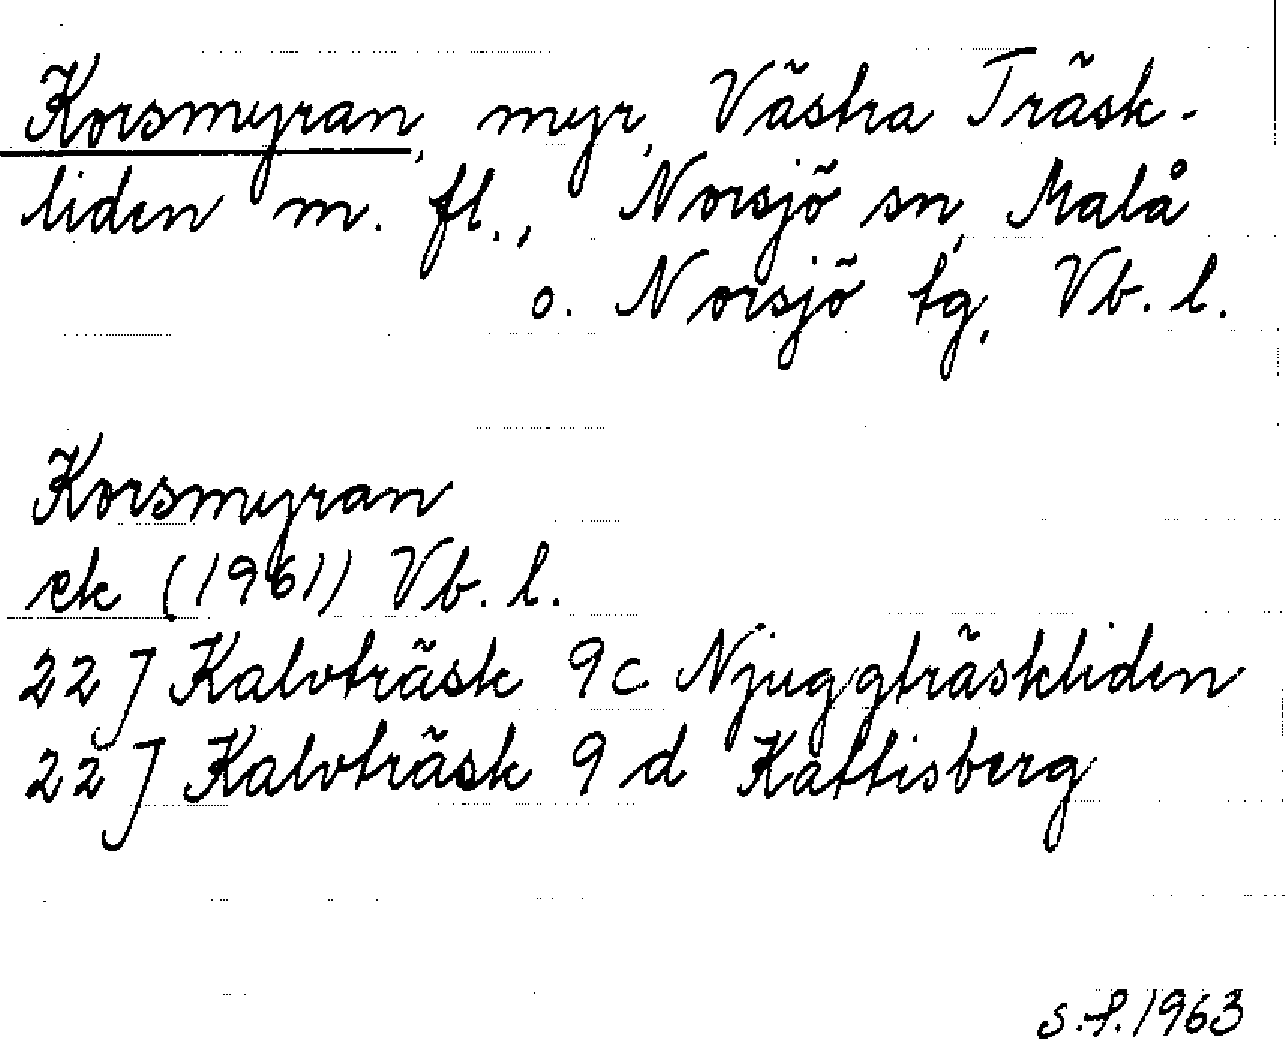 Korsmyran, myr, Västra Träsk-
liden m. fl., Norsjö sn, Malå
o. Norsjö tg, Vb. l.
Korsmyran
ek (1961) Vb. l.
22 J Kalvträsk 9c Njuggträskliden
22 J Kalvträsk 9d Kattisberg
S.P. 1963